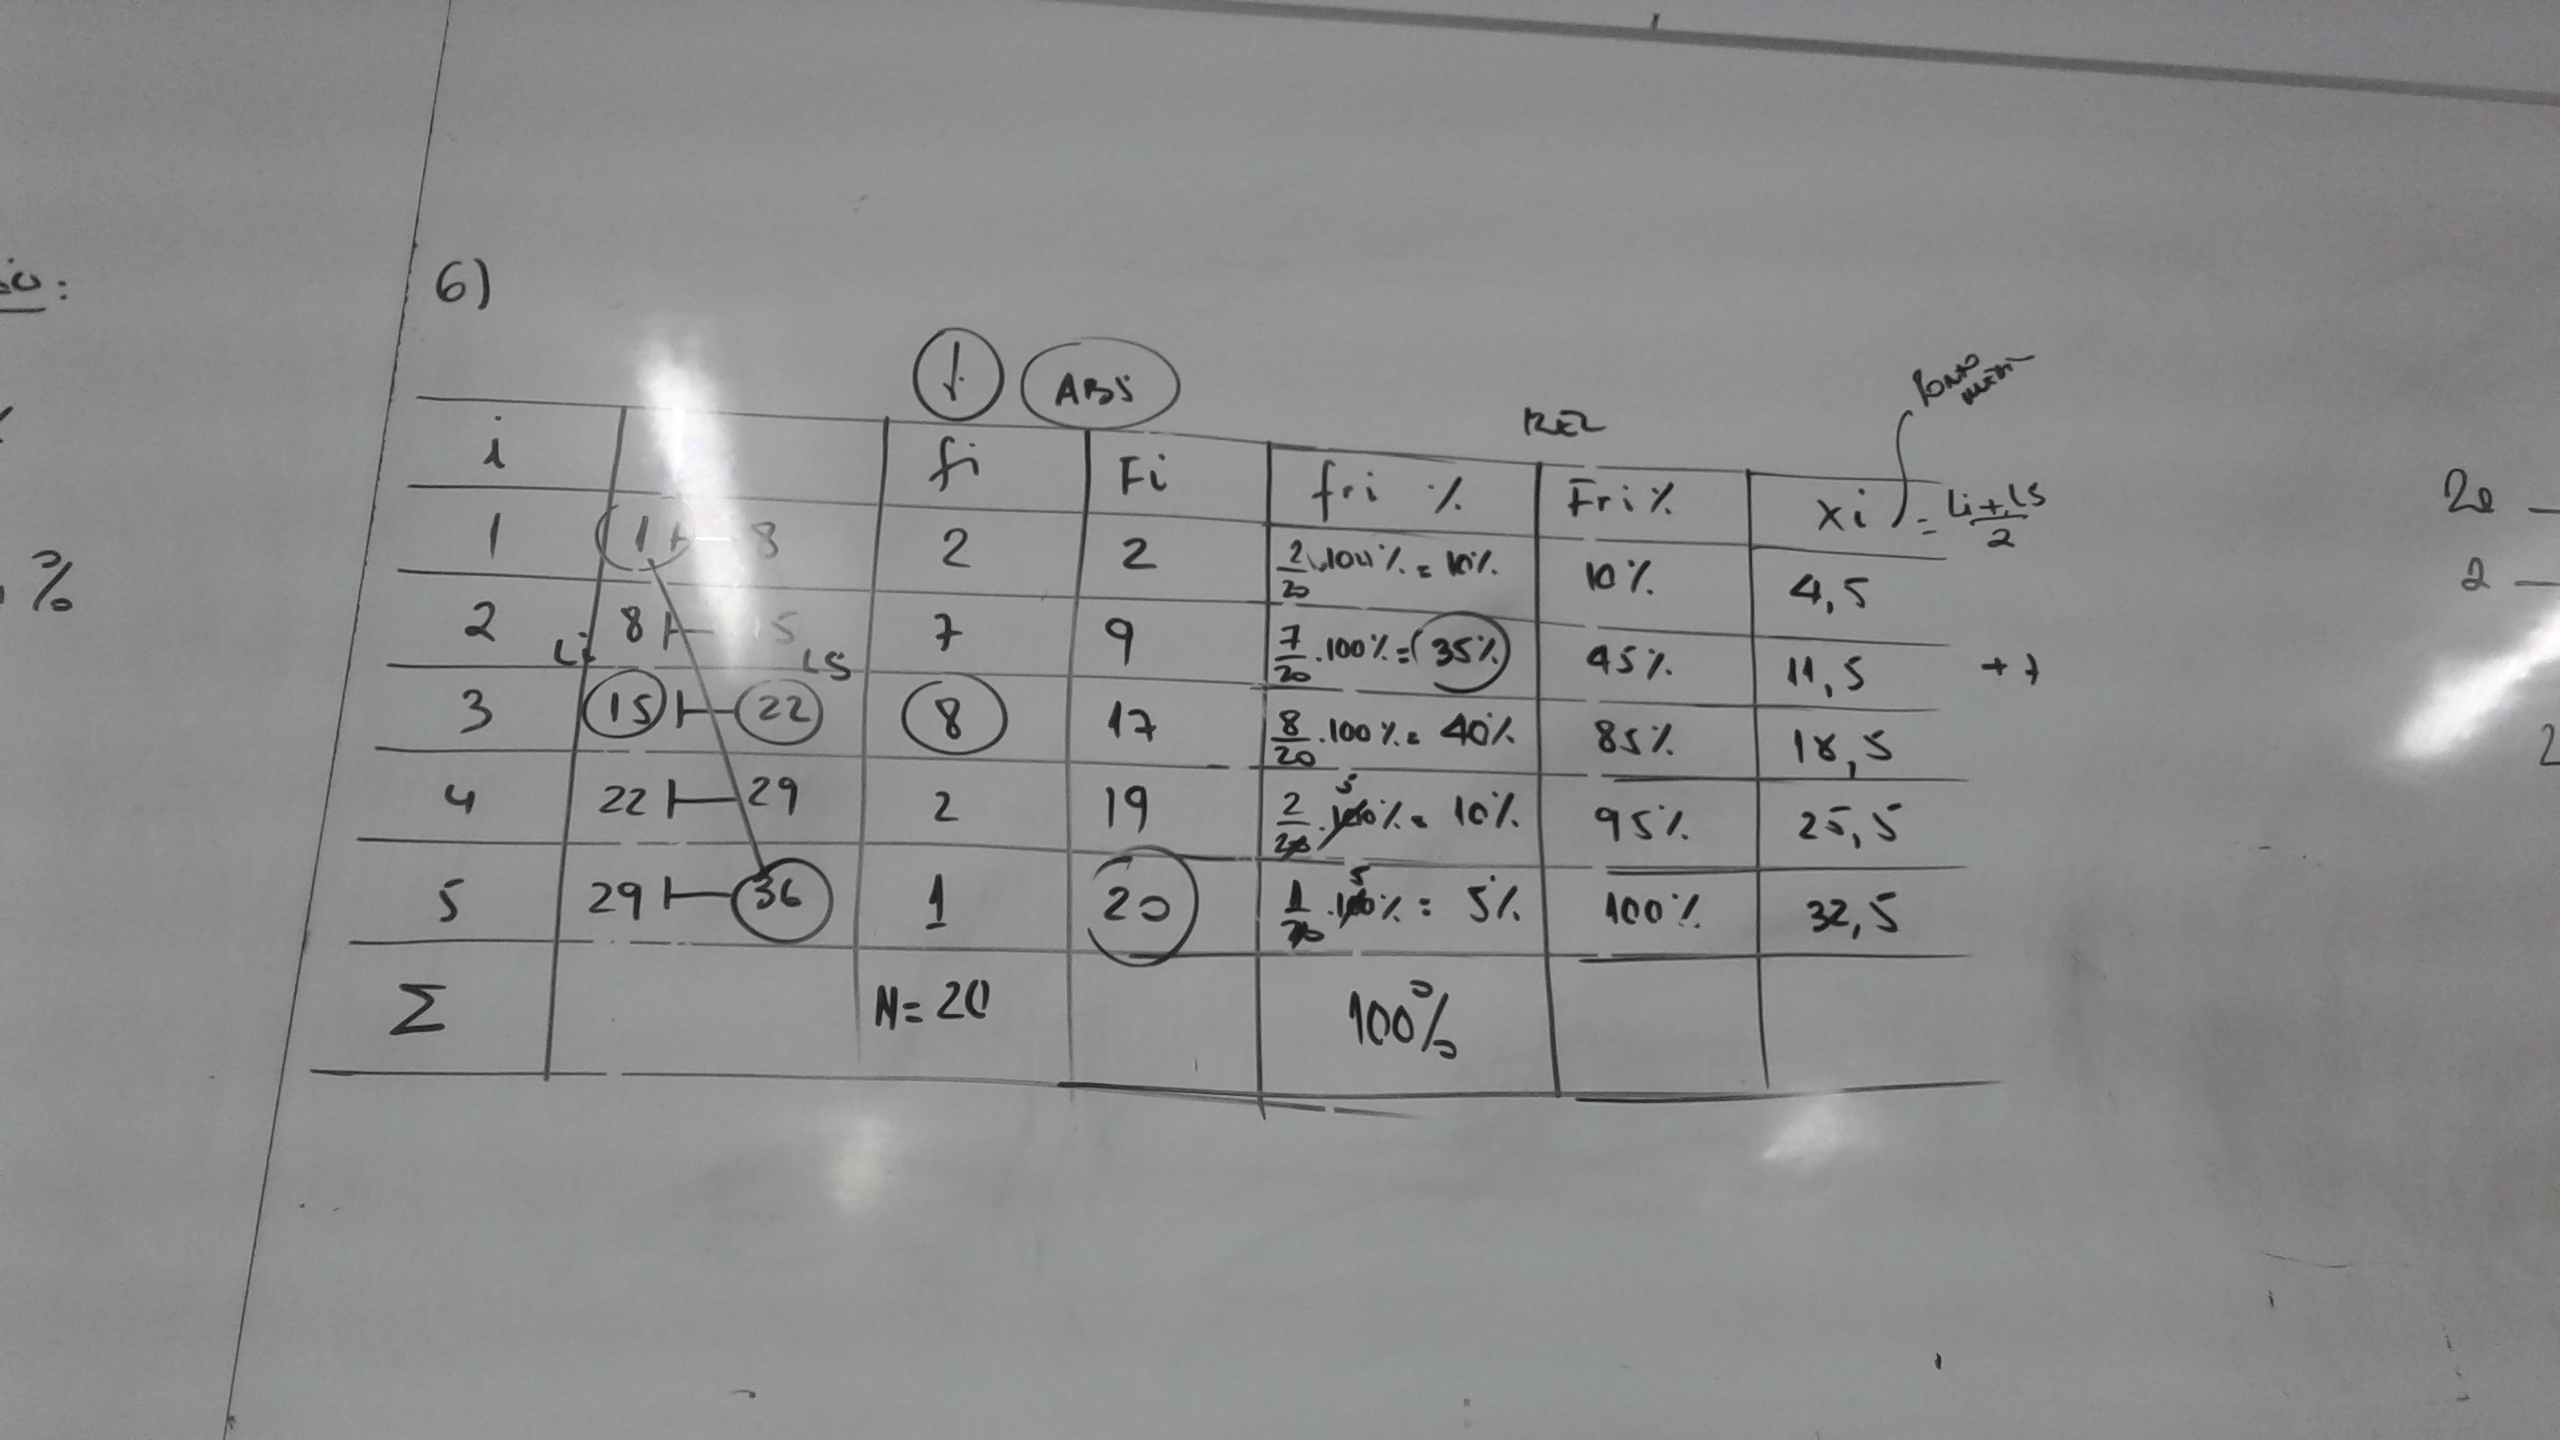 6)
f. ABS REL Ponto
i fi Fi fri % Fri % xi = Li + LS / 2
1 1 ⊢ 8 2 2 2/20 . 100% = 10% 10% 4,5
2 8 ⊢ 15 7 9 7/20 . 100% = 35% 45% 11,5 + 7
Li LS
3 15 ⊢ 22 8 17 8/20 . 100% = 40% 85% 18,5
4 22 ⊢ 29 2 19 2/20 . 100% 5 = 10% 95% 25,5
5 29 ⊢ 36 1 20 1/20 . 100% 5 = 5% 100% 32,5
Σ N = 20 100%
%
2